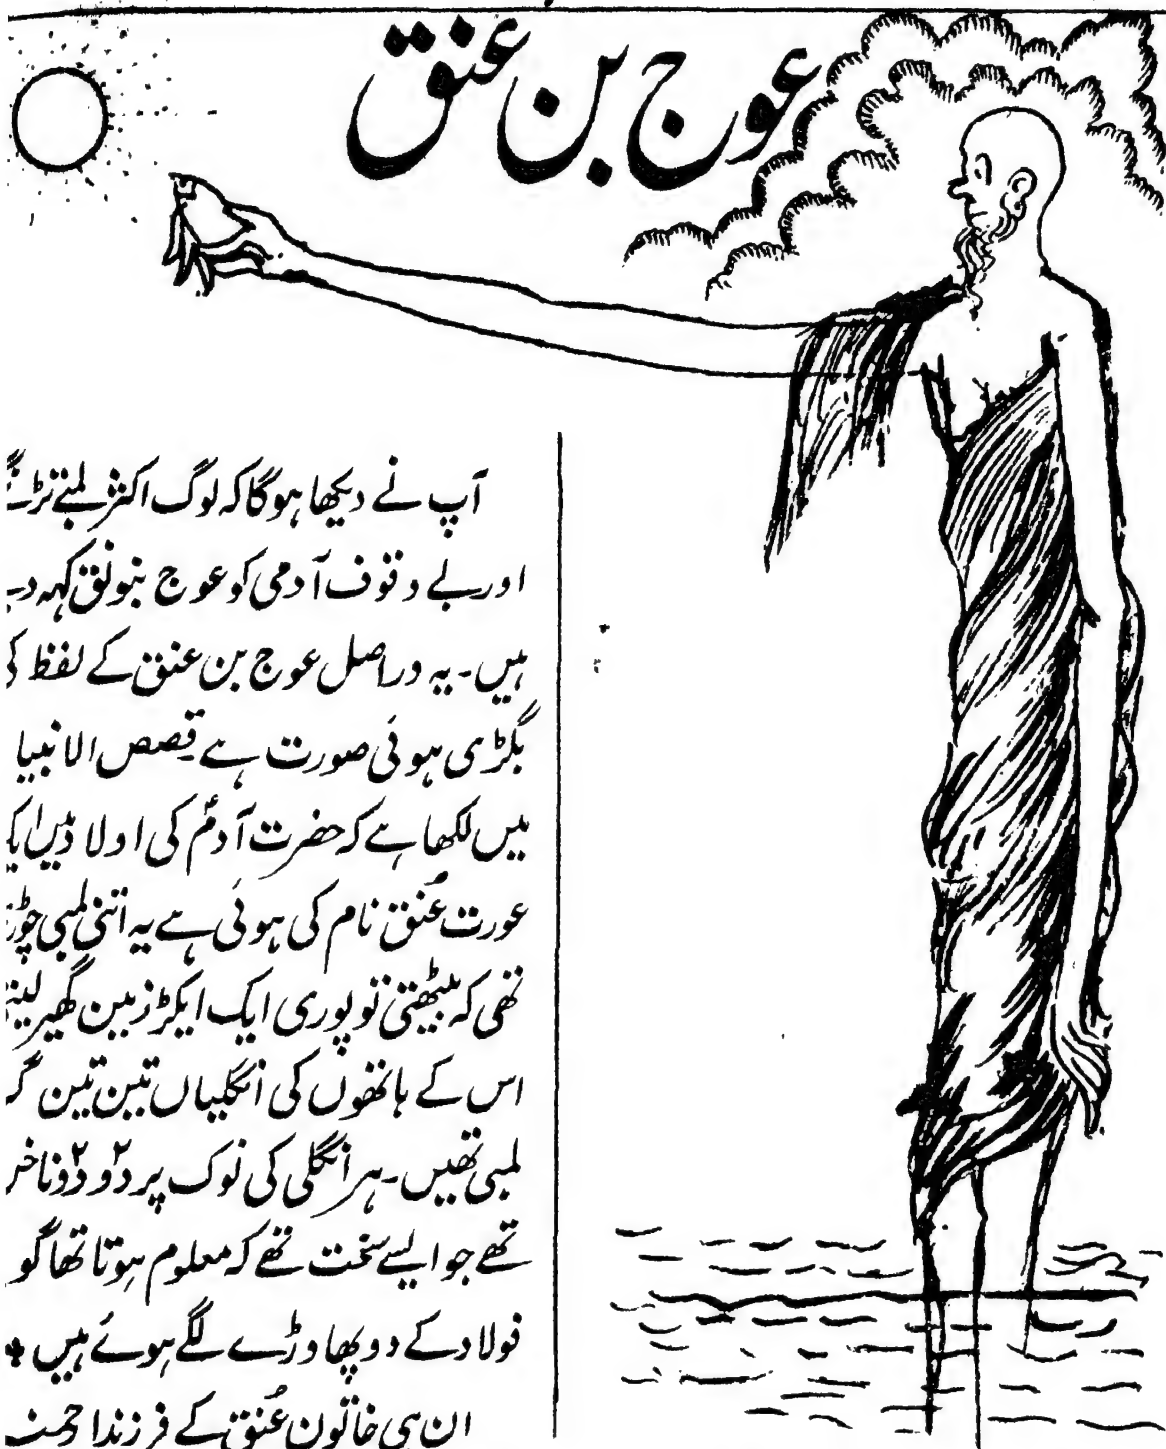 عوج بن عنق
آپ نے دیکھا ہوگا کہ لوگ اکثر لمبے تڑنگے
اور بے وقوف آدمی کو عوج بنولق کہہ
ہیں۔ یہ دراصل عوج بن عنق کے لفظ کی
بگڑی ہوئی صورت ہے۔ قصص الانبیا
میں لکھا ہے کہ حضرت آدمؑ کی اولاد میں
عورت عُنق نام کی ہوئی ہے یہ اتنی لمبی
تھی کہ بیٹھتی تو پوری ایک ایکڑ زمین گھیر
اس کے ہاتھوں کی انگلیاں تین تین
لمبی تھیں۔ ہر انگلی کی نوک پر دو۲ دو۲
تھے جو ایسے سخت تھے کہ معلوم ہوتا تھا گو
فولاد کے دو پھاوڑے لگے ہوئے ہیں
ان ہی خاتون عُنق کے فرزند